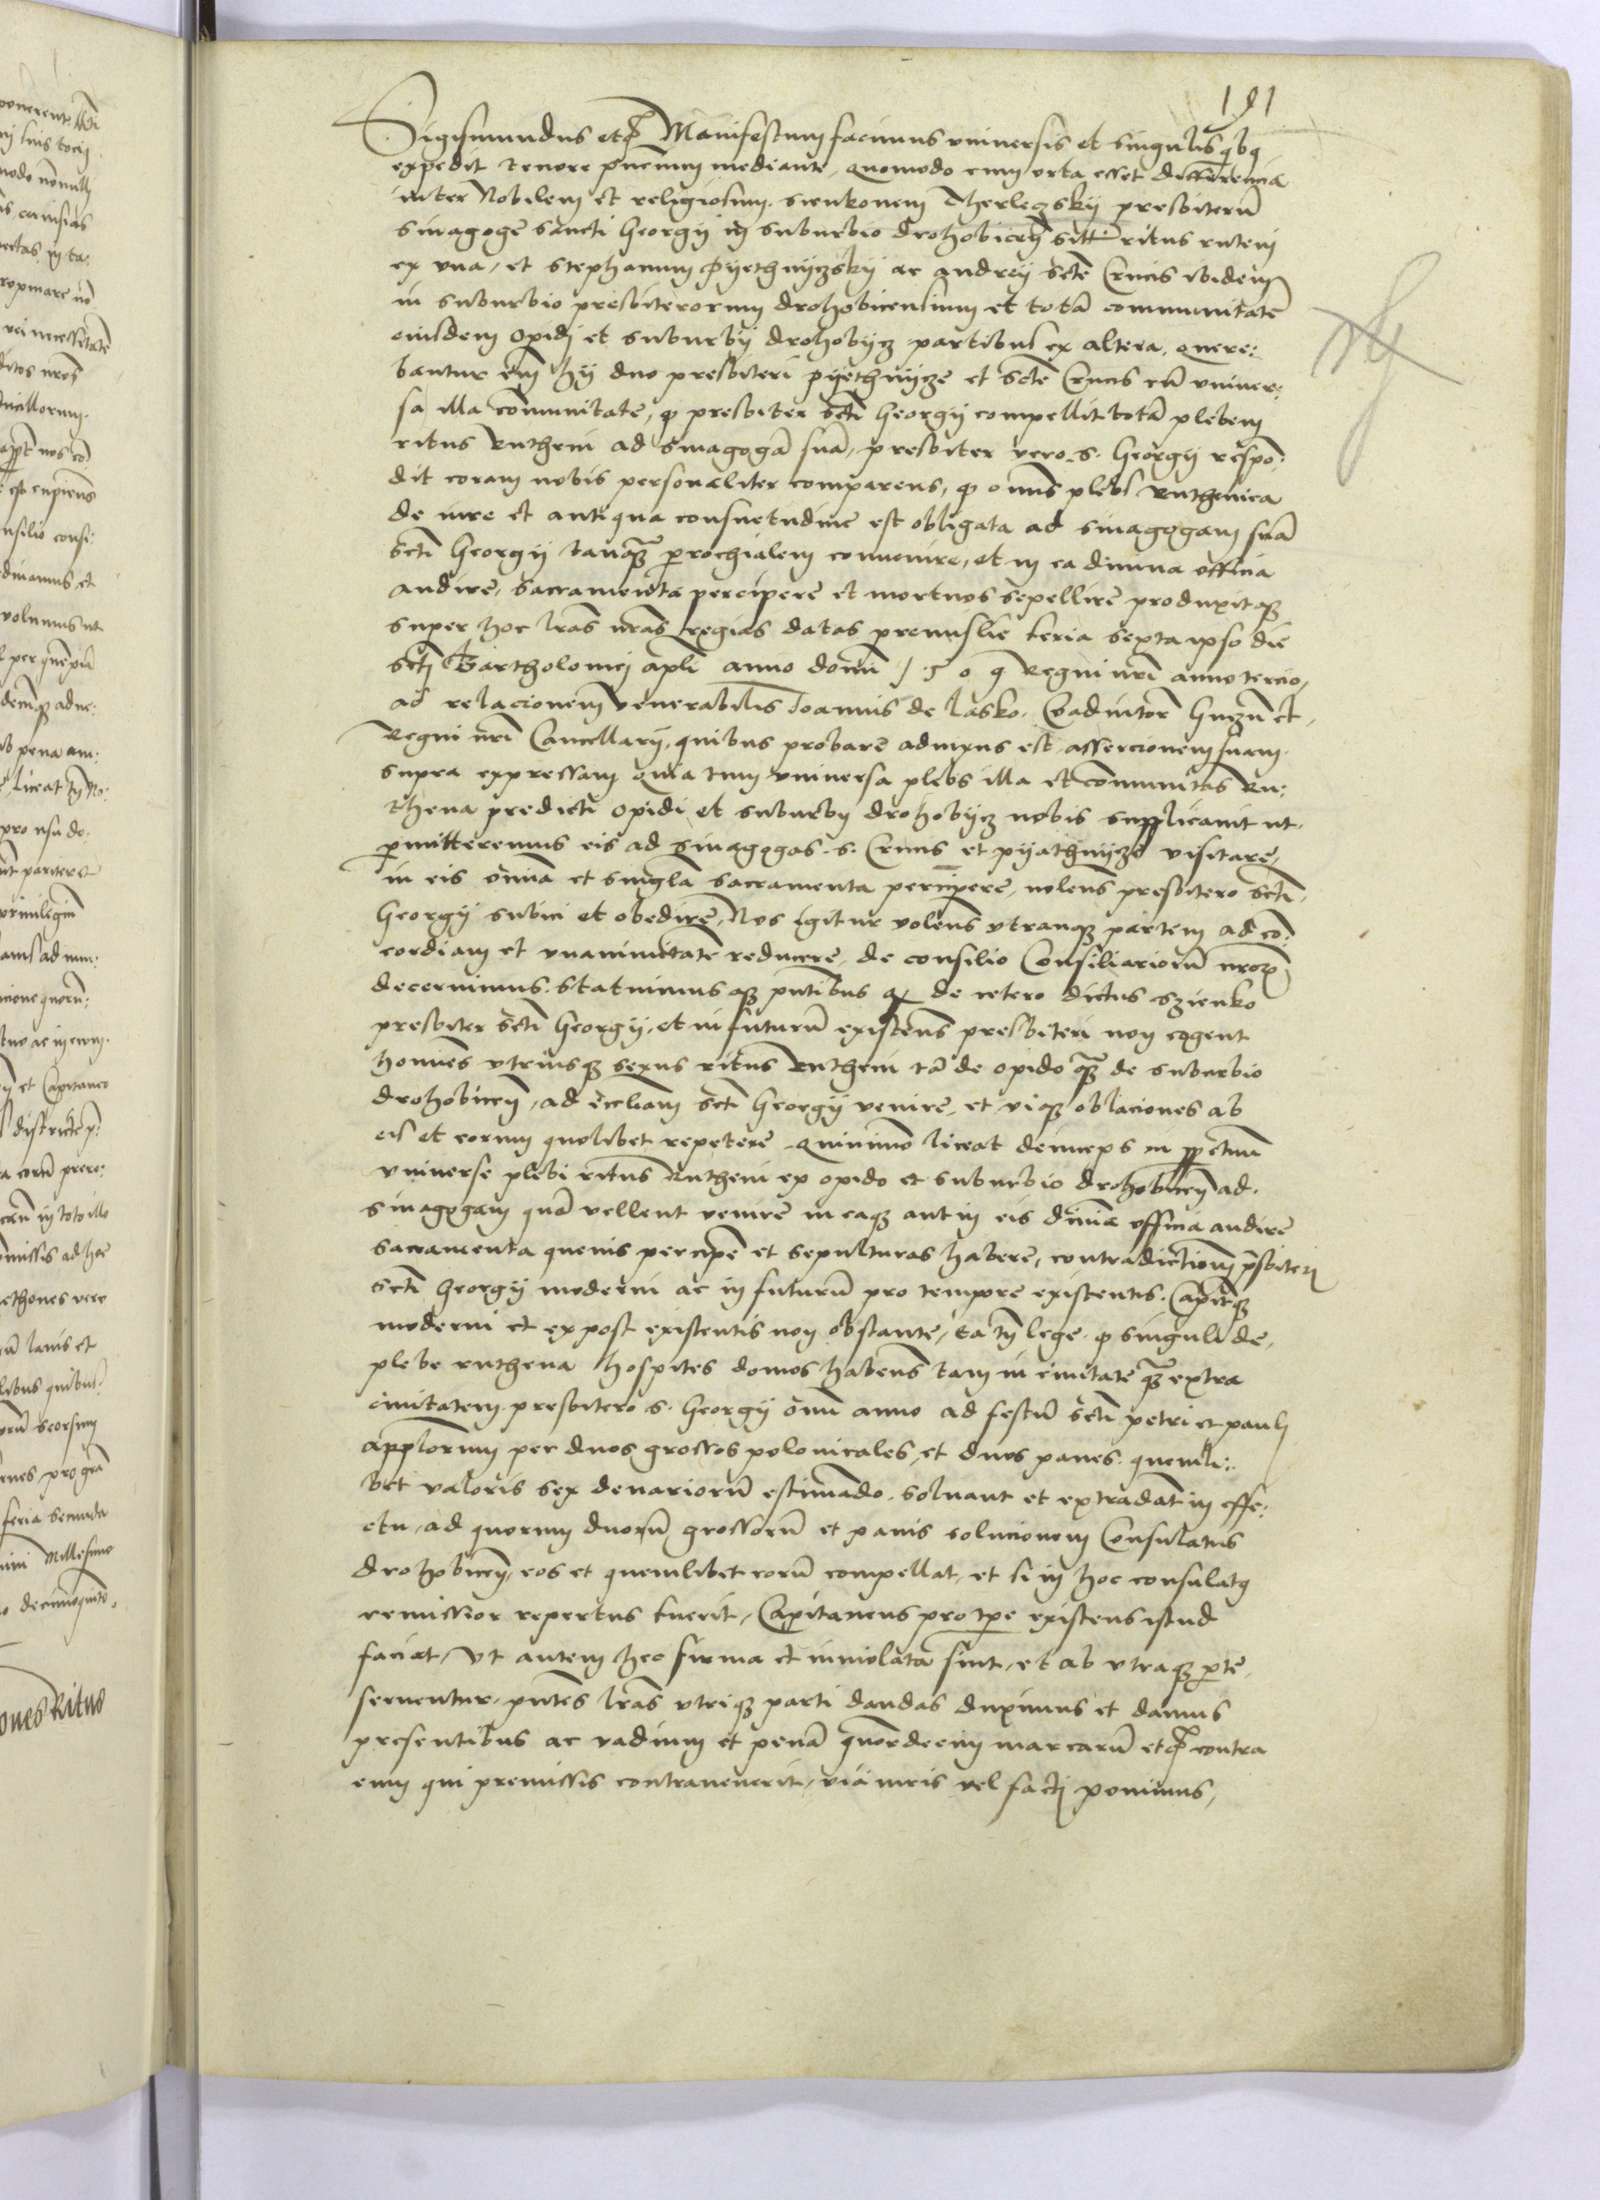 191
Sigismundus etc Manifestum facimus vniuersis et singulis qbq
expedit tenore pñcium mediante, quomodo cum orta esset differencia
inter Nobilem et religiosum sienkonem Therleczskÿ presbiterũ
sinagoge sancti Georgÿ in suburbio drohobiceñ ritus ruteni
ex vna, et stephanum pÿethnÿczskÿ ac andreÿ scte Crucis ibidem
in suburbio presbiterorum drohobicensium et totã communitatẽ
eiusdem opidj et suburbÿ drohobÿcz partibus ex altera, quere:
bantur em̃ hÿ duo presbiteri pÿethnÿcze et scte Crucis cũ vniuer:
sa illa com̃unitate, qͦ presbiter scti Georgÿ compellit totã plebem
ritus Rutheni ad sinagogã suã, presbiter vero s. Georgÿ respõ:
dit coram nobis personaliter comparens, qͦ omnis plebs Ruthenica
de iure et antiqua consuetudine est obligata ad sinagogam suã
scti Georgÿ tanqͣ parochialem conuenire, et in ea diuina officia
audire, sacramenta percipere et mortuos sepellire produxitqͣ
super hoc lr̃as nr̃as regias datas premislie feria sexta ipso die
scti Bartholomei apli anno domini 1509 Regni nr̃i anno tercio,
ad relacionem venerabilis Joannis de lasko. Coadiutor̃ Gnzñ et
Regni nr̃i Cancellarÿ, quibus probare adnixus est assercionem suam
supra expressam quia tum vniuersa plebs illa et com̃unitas Ru:
thena predicti opidi et suburbÿ drohobÿcz nobis supplicauit ut
permitteremus eis ad sinagogas s. Crucis et pÿathnÿcze visitare,
in eis om̃ia et singl̃a sacramenta percipere, nolens presbitero scti
Georgÿ subici et obedire, Nos igitur volens vtranqͣ partem ad cõ:
cordiam et vnanimitatẽ reducere, de consilio Consiliariorũ nr̃orũ
decernimus. statuimusqͣ pñtibus qͦ de cetero dictus szienko
presbiter scti Georgÿ, et in futurũ existens presbiteri non cogent
hoĩnes vtriusqͣ sexus ritus Rutheni tã de opido qͣ de suburbio
drohobiceñ, ad eccliam scti Georgÿ venire, et oblaciones ab
eis et eorum quolibet repetere quinimo liceat deinceps in ppetuũ
vniuerse plebi ritus Rutheni ex opido et suburbio drohobiceñ ad
sinagogam quã vellent venire in eaqͣ aut in eis diuina officia audire
sacramenta queuis percipe et sepulturas habere, contradictiom̃ p̃sbiteri
scti Georgÿ moderni ac in futurũ pro tempore existentis. Capitqͣ
moderni et ex post existentis non obstante, ea tñ lege qͦ singuli de
plebe ruthena hospites domos habens tam in ciuitate qͣ extra
ciuitatem presbitero s. Georgÿ om̃i anno ad festũ scti petri et pauli
apploruм per duos grossos polonicales, et duos panes quemli:
bet valoris sex denariorũ estimãdo, soluant et extradãt in effe:
ctu, ad quorum duorũ grossorũ et panis solucionem Consulatus
drohobiceñ, eos et quemlibet eorũ compellat, et si in hoc consulatq
remissior repertus fuerit, Capitaneus pro tpe existens istud
faciat, Vt autem hec firma et inuiolata sint, et ab vtraqͣ pte
seruentur, pñtes lr̃as vtriqͣ parti dandas duximus et damus
presentibus ac vadium et penã marcarũ etc contra
eum qui premissis contrauenerit, viã iuris vel facti ponimus,